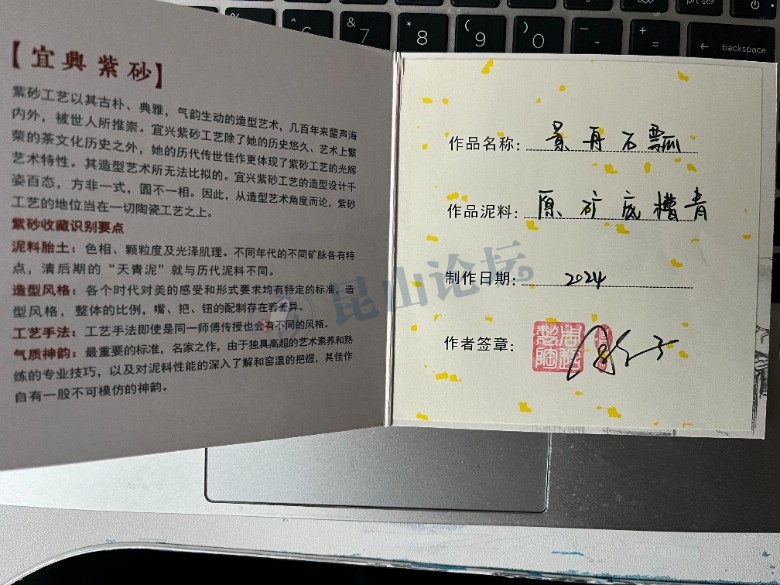 【宜興紫砂】
紫砂工艺以其古朴、典雅，气韵生动的造型艺术，几百年来蜚声海
内外，被世人所推崇。宜兴紫砂工艺除了她的历史悠久、艺术上繁
荣的茶文化历史之外，她的历代传世佳作更体现了紫砂工艺的光辉
艺术特性。其造型艺术所无法比拟的。宜兴紫砂工艺的造型设计千
姿百态，方非一式，圆不一相。因此，从造型艺术角度而论，紫砂
工艺的地位当在一切陶瓷工艺之上。
紫砂收藏识别要点
泥料胎土：色相、颗粒度及光泽肌理。不同年代的不同矿脉各有特
点，清后期的“天青泥”就与历代泥料不同。
造型风格：各个时代对美的感受和形式要求均有特定的标准，造
型风格，整体的比例，嘴、把、钮的配制存在着差异。
工艺手法：工艺手法即使是同一师傅传授也会有不同的风格。
气质神韵：最重要的标准，名家之作，由于独具高超的艺术素养和熟
练的专业技巧，以及对泥料性能的深入了解和窑温的把握，其佳作
自有一股不可模仿的神韵。
作品名称：景舟石瓢
作品泥料：原矿底槽青
制作日期：2024
作者签章：
昆山论坛
backspace
prt scr